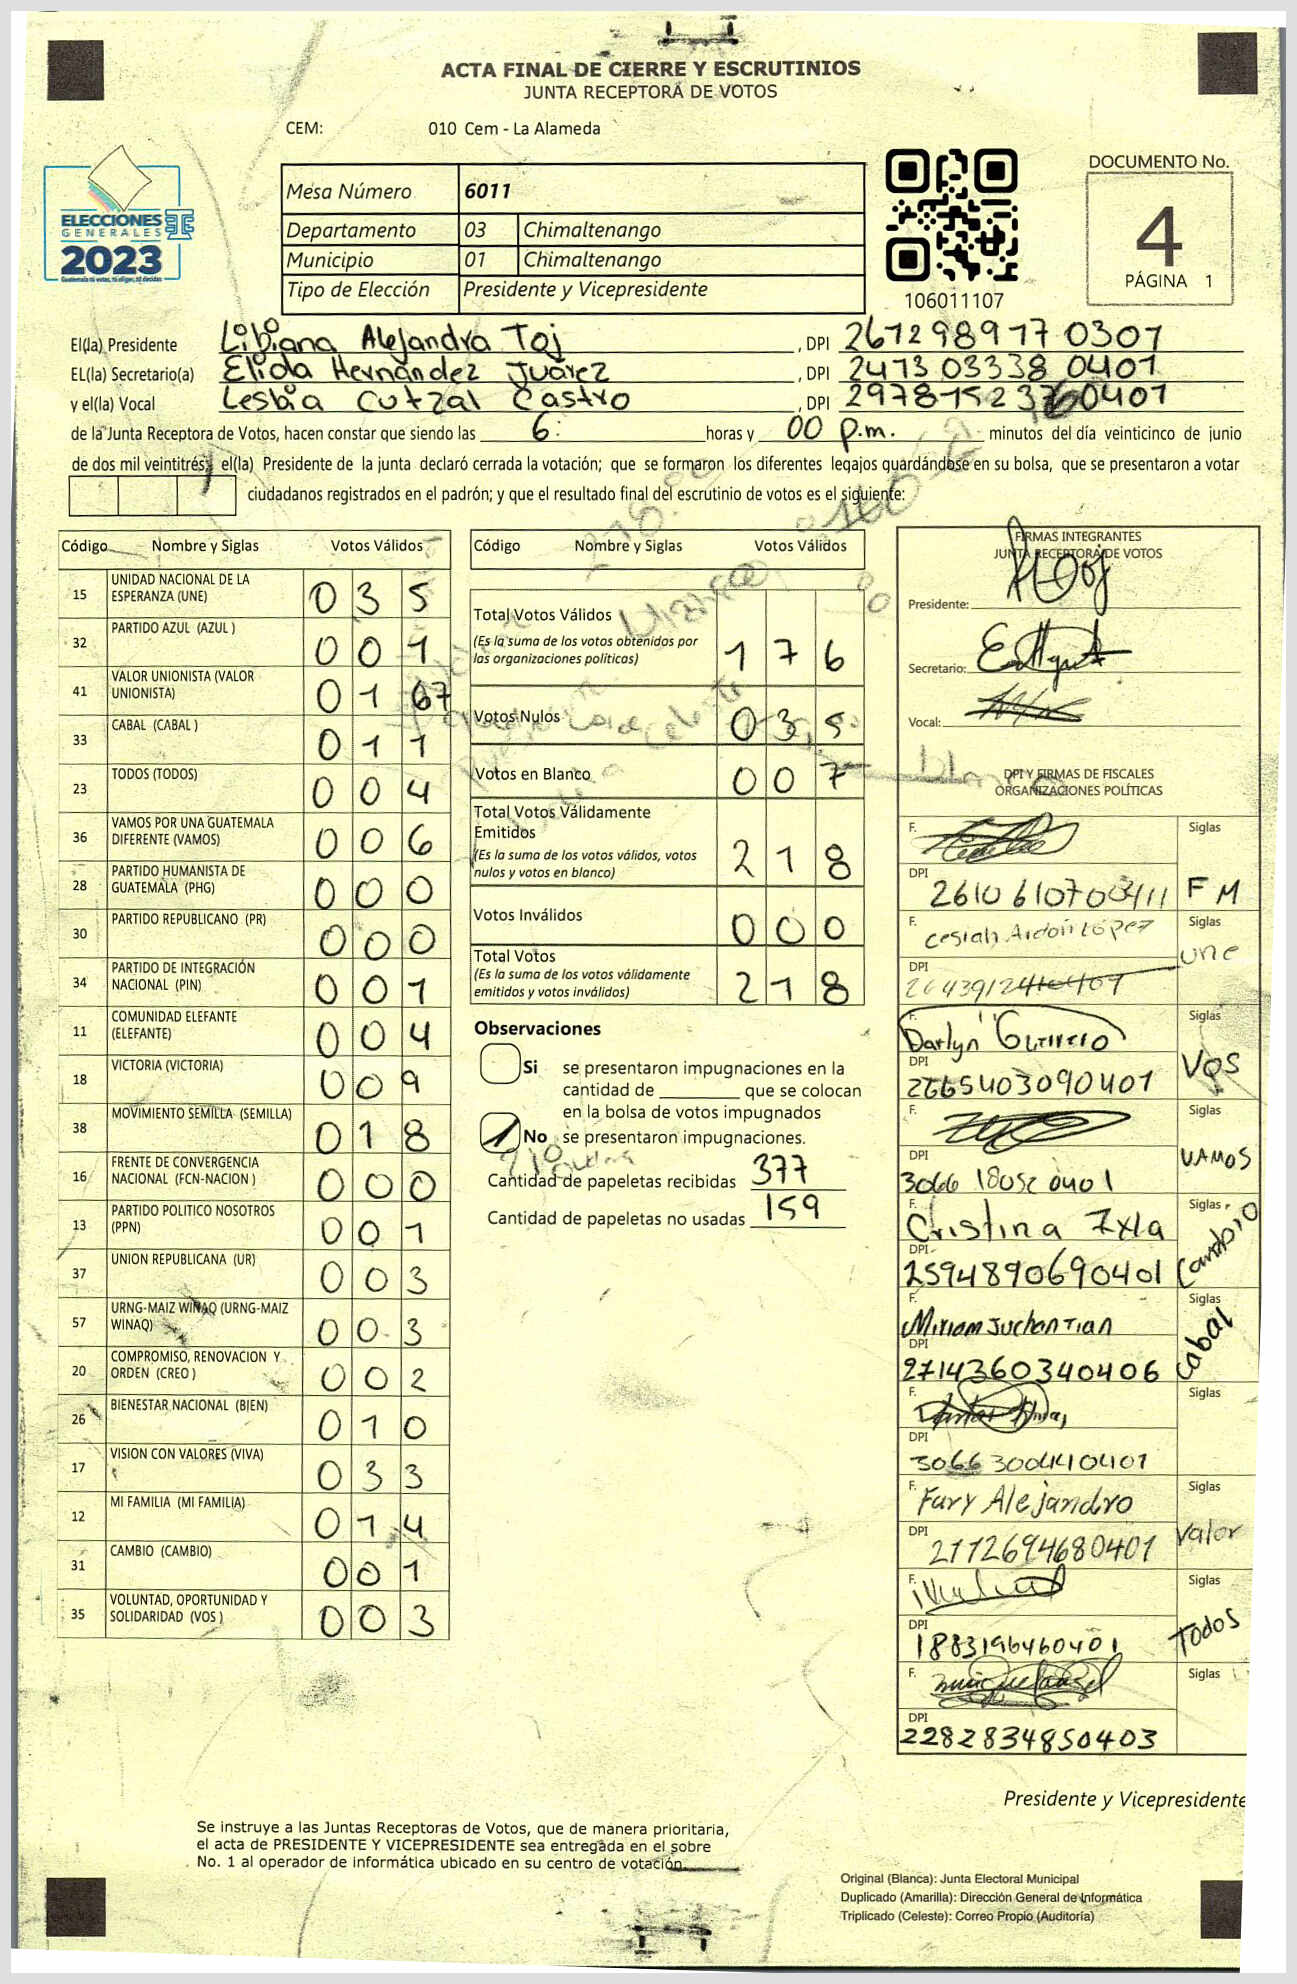 ACTA FINAL DE CIERRE Y ESCRUTINIOS
JUNTA RECEPTORA DE VOTOS
CEM: 010 Cem - La Alameda
ELECCIONES
GENERALES
2023
Mesa Número 6011
Departamento 03 Chimaltenango
Municipio 01 Chimaltenango
Tipo de Elección Presidente y Vicepresidente
106011107
DOCUMENTO No.
4
PÁGINA 1
El(la) Presidente Libiana Alejandra Toj, DPI 261298917 0301
EL(la) Secretario(a) Elida Hernández Juárez, DPI 2473 03338 0401
y el(la) Vocal Lesbia Cutzal Castro, DPI
de la Junta Receptora de Votos, hacen constar que siendo las 6: horas y 00 p.m. minutos del día veinticinco de junio
de dos mil veintitrés, el(la) Presidente de la junta declaró cerrada la votación; que se formaron los diferentes legajos guardándose en su bolsa, que se presentaron a votar
ciudadanos registrados en el padrón; y que el resultado final del escrutinio de votos es el siguiente:
Código Nombre y Siglas Votos Válidos
15 UNIDAD NACIONAL DE LA ESPERANZA (UNE) 0 3 5
32 PARTIDO AZUL (AZUL ) 0 0 1
41 VALOR UNIONISTA (VALOR UNIONISTA) 0 1 67
33 CABAL (CABAL ) 0 1 1
23 TODOS (TODOS) 0 0 4
36 VAMOS POR UNA GUATEMALA DIFERENTE (VAMOS) 0 0 6
28 PARTIDO HUMANISTA DE GUATEMALA (PHG) 0 0 0
30 PARTIDO REPUBLICANO (PR) 0 0 0
34 PARTIDO DE INTEGRACIÓN NACIONAL (PIN) 0 0 1
11 COMUNIDAD ELEFANTE (ELEFANTE) 0 0 4
18 VICTORIA (VICTORIA) 0 0 9
38 MOVIMIENTO SEMILLA (SEMILLA) 0 1 8
16 FRENTE DE CONVERGENCIA NACIONAL (FCN-NACION ) 0 0 0
13 PARTIDO POLITICO NOSOTROS (PPN) 0 0 1
37 UNION REPUBLICANA (UR) 0 0 3
57 URNG-MAIZ WINAQ (URNG-MAIZ WINAQ) 0 0 3
20 COMPROMISO, RENOVACION Y ORDEN (CREO ) 0 0 2
26 BIENESTAR NACIONAL (BIEN) 0 1 0
17 VISION CON VALORES (VIVA) 0 3 3
12 MI FAMILIA (MI FAMILIA) 0 1 4
31 CAMBIO (CAMBIO) 0 0 1
35 VOLUNTAD, OPORTUNIDAD Y SOLIDARIDAD (VOS ) 0 0 3
Código Nombre y Siglas Votos Válidos
Total Votos Válidos
(Es la suma de los votos obtenidos por las organizaciones políticas) 1 7 6
Votos Nulos 0 3 5
Votos en Blanco 0 0 7
Total Votos Válidamente Emitidos
(Es la suma de los votos válidos, votos nulos y votos en blanco) 2 1 8
Votos Inválidos 0 0 0
Total Votos
(Es la suma de los votos válidamente emitidos y votos inválidos) 2 1 8
Observaciones
Si se presentaron impugnaciones en la
cantidad de ________ que se colocan
en la bolsa de votos impugnados
No se presentaron impugnaciones.
Cantidad de papeletas recibidas 377
Cantidad de papeletas no usadas 159
FIRMAS INTEGRANTES
JUNTA RECEPTORA DE VOTOS
Presidente:
Secretario:
Vocal:
DPI Y FIRMAS DE FISCALES
ORGANIZACIONES POLÍTICAS
F. Siglas
DPI FM
F. Cesiah Ardón López Siglas
DPI une
F. Darlyn Guerrero Siglas
DPI 2665403090401 VOS
F. Siglas
DPI VAMOS
F. Cristina Siglas
DPI 2594890690401 Cambio
F. Siglas
DPI 2714360340406 Cabal
F. Siglas
DPI 3066300440401
F. Fury Alejandro Siglas
DPI 2172694680401 Valor
F. Siglas
DPI 1883196460401 Todos
F. Siglas
DPI 2282834850403
Presidente y Vicepresidente
Se instruye a las Juntas Receptoras de Votos, que de manera prioritaria,
el acta de PRESIDENTE Y VICEPRESIDENTE sea entregada en el sobre
No. 1 al operador de informática ubicado en su centro de votación.
Original (Blanca): Junta Electoral Municipal
Duplicado (Amarilla): Dirección General de Informática
Triplicado (Celeste): Correo Propio (Auditoría)